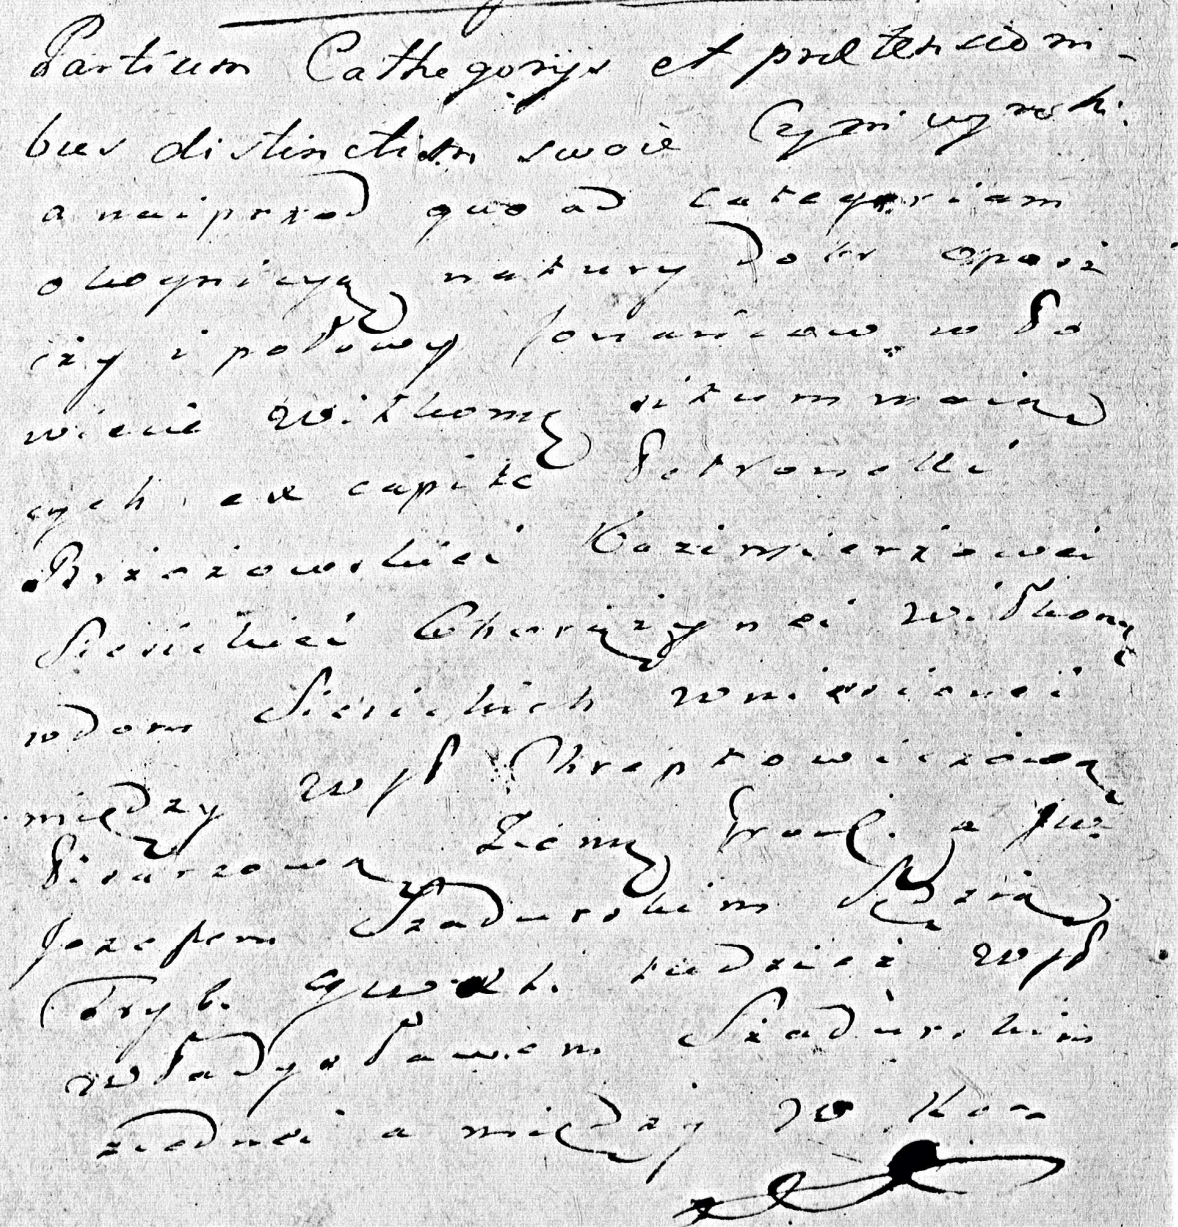 Partium Cathegoryis et prætensioni-
bus distinctim swoie Czyni wyroki.
a naiprzod quo ad categoriam
okognicyą natury Dobr
iży i połowy w Po
wiecie Wiłkom situm maiąc
cych, ex capite Petronelli
Brzozowskiei Kazimierzowei
Siesickiei Chorążynei Wiłkom
w dom Siesickich wniesionei
między WJP Chreptowiczową
Pisarzową Ziemą Trock. a JW
Jozefem Szadurskim Sędzią
Tryb. Gł W X L. tudzież WJP
Władysławem Szadurskim
ziednei a między W Kos